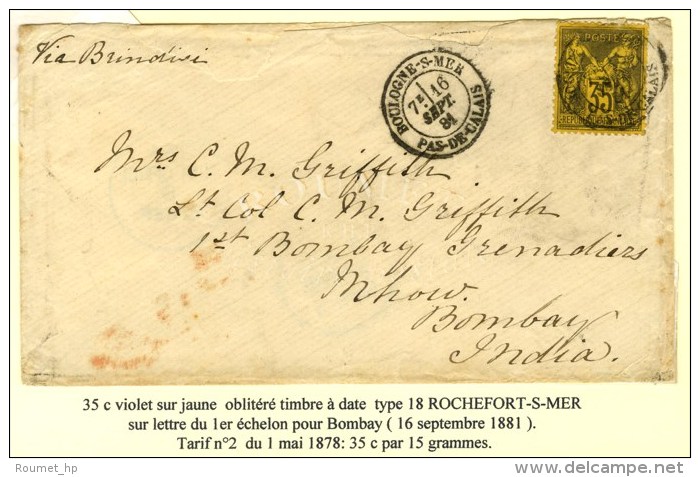 Via Brindisi
BOULOGNE-S-MER
7E 16
SEPT.
81
PAS-DE-CALAIS
POSTES
35
REPUBLIQUE
CALAIS
Mrs C. M. Griffith
Lt Col C. M. Griffith
1st Bombay Grenadiers
Mhow.
Bombay
India.
35 c violet sur jaune oblitéré timbre à date type 18 ROCHEFORT-S-MER
sur lettre du 1er échelon pour Bombay ( 16 septembre 1881 ).
Tarif n°2 du 1 mai 1878: 35 c par 15 grammes.
Roumet_hp
delcampe.net